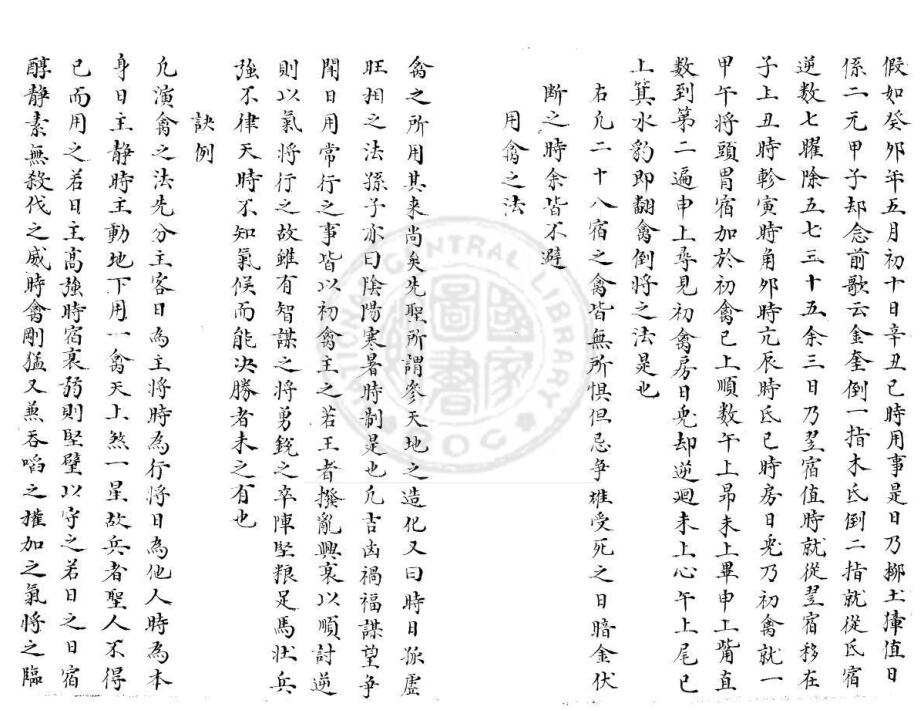 假如癸夘年五月初十日辛丑巳時用事是日乃柳土獐值日
係二元甲子却念前歌云金奎倒一指木氐倒二指就從氐宿
逆数七曜除五七三十五余三日乃翌宿值時就從翌宿移在
子上丑時軫寅時角夘時亢辰時氐巳時房日兎乃初禽就一
甲午将頭胃宿加於初禽巳上順数午上昴未上畢申上觜直
数到第二遍申上尋見初禽房日兎却逆廻未上心午上尾巳
上箕水豹即翻禽倒将之法是也
右凢二十八宿之禽皆無所惧但忌争雄受死之日暗金伏
断之時余皆不避
用禽之法
禽之所用其来尚矣先聖所謂參天地之造化又曰時日孤虚
旺相之法孫子亦曰陰陽寒暑時制是也凢吉凶禍福謀望争
鬥日用常行之事皆以初禽主之若王者撥亂興衰以順討逆
則以氣将行之故雖有智謀之将勇銳之卒陣堅粮足馬壮兵
強不律天時不知氣候而能决勝者未之有也
訣例
凢演禽之法先分主客日為主将時為行将日為他人時為本
身日主静時主動地下用一禽天上煞一星故兵者聖人不得
已而用之若日主高強時宿衰弱則堅壁以守之若日之日宿
醇静素無殺伐之威時禽剛猛又兼吞啗之權加之氣将之臨